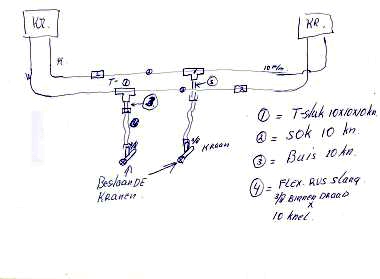 KR.
KR.
K
10 m/m
2
1
1
T= 1
W
1
3
2
3
4
3/8
3/8
KRAAN
BESTAANDE
KRANEN.
1 = T-stuk 10x10x10kn.
2 = SOK 10 kn.
3 = Buis 10 kn.
4 = FLEX. RVS slang.
3/8 BINNEN DRAAD
x
10 knel.